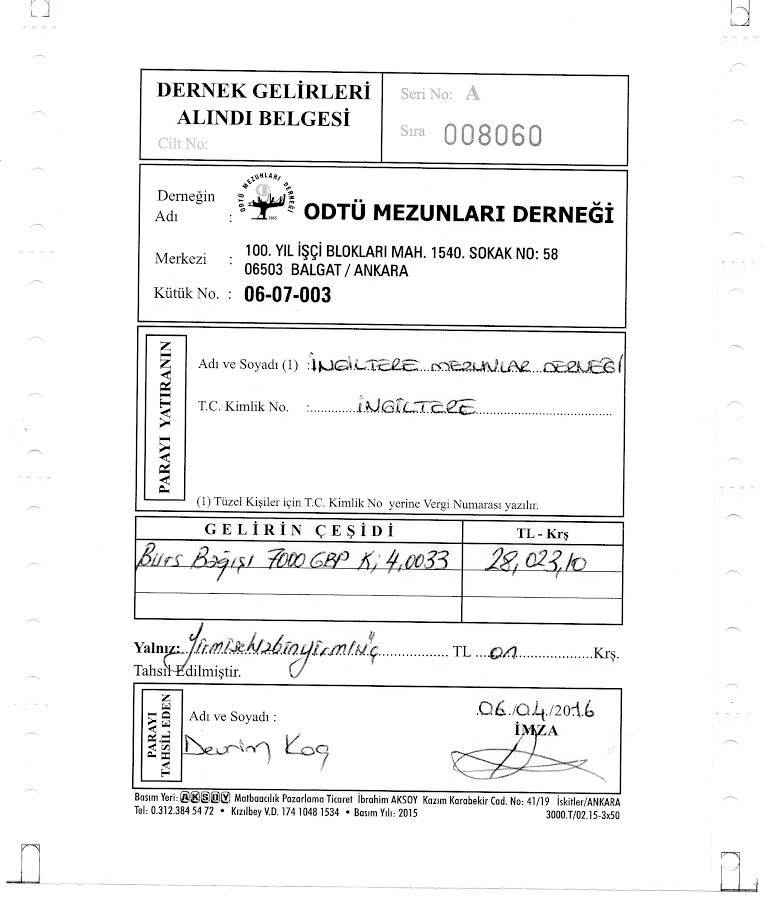 DERNEK GELİRLERİ
ALINDI BELGESİ
Cilt No:
Seri No: A
Sıra 008060
Derneğin
Adı :
ODTÜ MEZUNLARI DERNEĞİ
1965
ODTÜ MEZUNLARI DERNEĞİ
Merkezi : 100. YIL İŞÇİ BLOKLARI MAH. 1540. SOKAK NO: 58
06503 BALGAT / ANKARA
Kütük No. : 06-07-003
PARAYI YATIRANIN
Adı ve Soyadı (1) :İNGİLTERE...MEZUNLAR...DERNEĞİ
T.C. Kimlik No. :............İNGİLTERE.................................
(1) Tüzel Kişiler için T.C. Kimlik No yerine Vergi Numarası yazılır.
GELİRİN ÇEŞİDİ TL - Krş
Burs Bağışı 7000 GBP K; 4,0033 28,023,10
Yalnız:..Yirmisekizbinyirmiüç.................. TL ....on.....................Krş.
Tahsil Edilmiştir.
PARAYI
TAHSİL EDEN
Adı ve Soyadı :
Devrim Koç
.06./04./2016
İMZA
Basım Yeri: AKSOY Matbaacılık Pazarlama Ticaret İbrahim AKSOY Kazım Karabekir Cad. No: 41/19 İskitler/ANKARA
Tel: 0.312.384 54 72 • Kızılbey V.D. 174 1048 1534 • Basım Yılı: 2015 3000.T/02.15-3x50